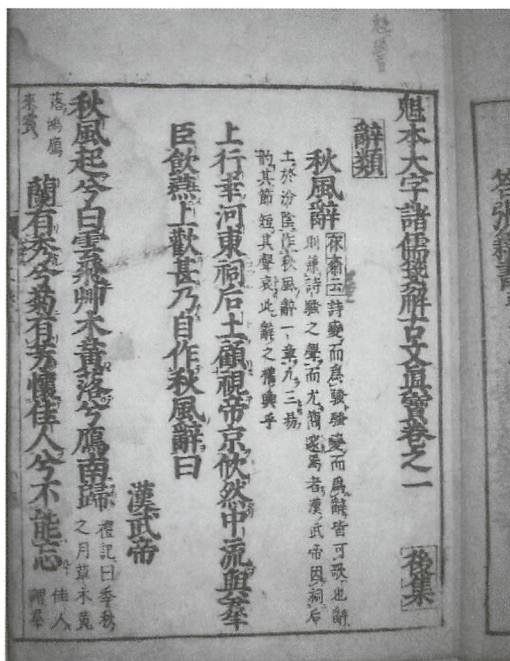 魁本大字諸儒箋解古文眞寶卷之一 後集
辭類
秋風辭 休齋云詩變而爲騷騷變而爲辭皆可歌也辭
則兼詩騷之聲而尤簡邃焉者漢武帝因祠后
土於汾陰作秋風辭一章凡三易
韵其節短其聲哀此辭之權輿乎
漢武帝
上行幸河東祠后土顧視帝京欣然中流與羣
臣飲燕上歡甚乃自作秋風辭曰
秋風起兮白雲飛艸木黃落兮鴈南歸 禮記曰季秋
之月草木黃
落鴻鴈
來賓
蘭有秀兮菊有芳懷佳人兮不能忘 佳人
謂羣